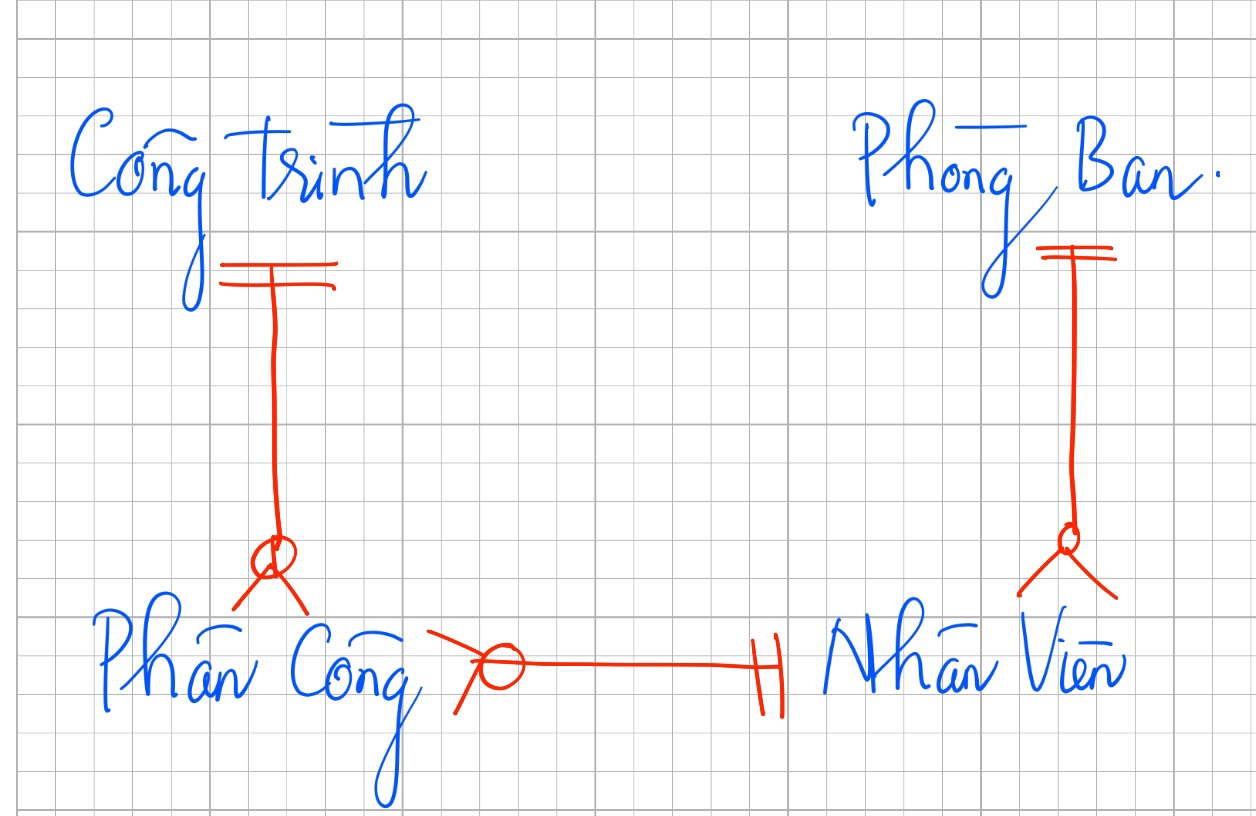 Công trình
Phòng Ban.
Phân Công
Nhân Viên